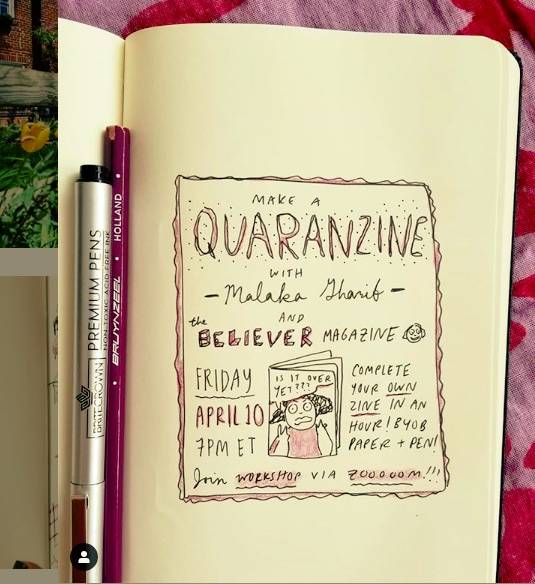 MAKE A
QUARANZINE
WITH
- Malaka Gharib -
AND
the
BELIEVER MAGAZINE
FRIDAY
APRIL 10
7PM ET
IS IT OVER
YET???
COMPLETE
YOUR OWN
ZINE IN AN
HOUR! BYOB
PAPER + PEN!
Join WORKSHOP VIA ZOOOOOM!!!
BRITECROWN PREMIUM PENS
NON-TOXIC ACID-FREE INK
BRUYNZEEL • HOLLAND •